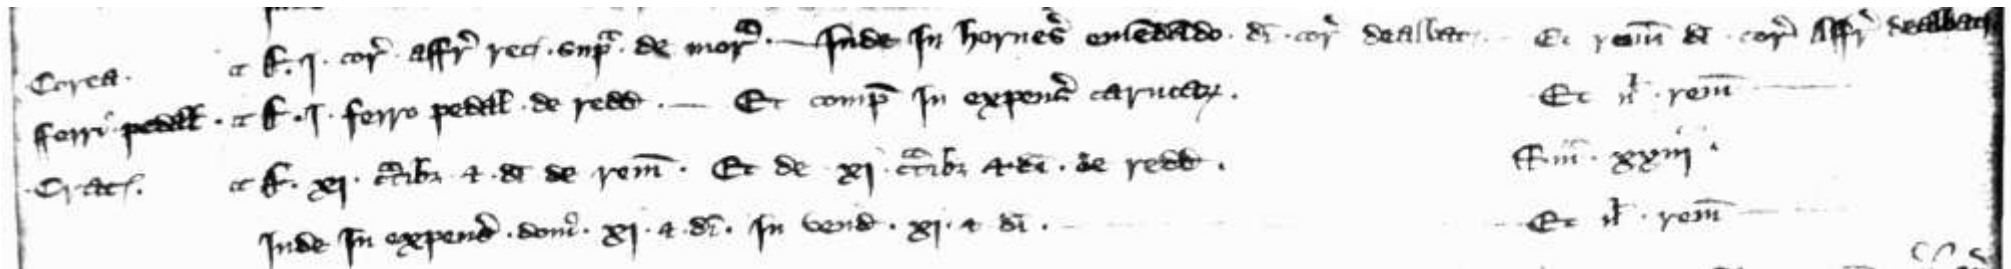 Correa. r[espondet] .j. cor' affr' rec' supra de mor'. Inde In hernes' emendando di' cor' dealbat'. Et rem' di' cor' affr' dealbat'
fferr' pedal' . j. ferro pedal' de redd'. Et comp' In expens' carucar'. Et nl' rem'
Crates. xj. cratibz & di' de rem'. Et de xj cratibz & di' de redd'. xxiij.
Inde In expens' dom' xj & di'. In vend' . xj. & di'. Et nl' rem'